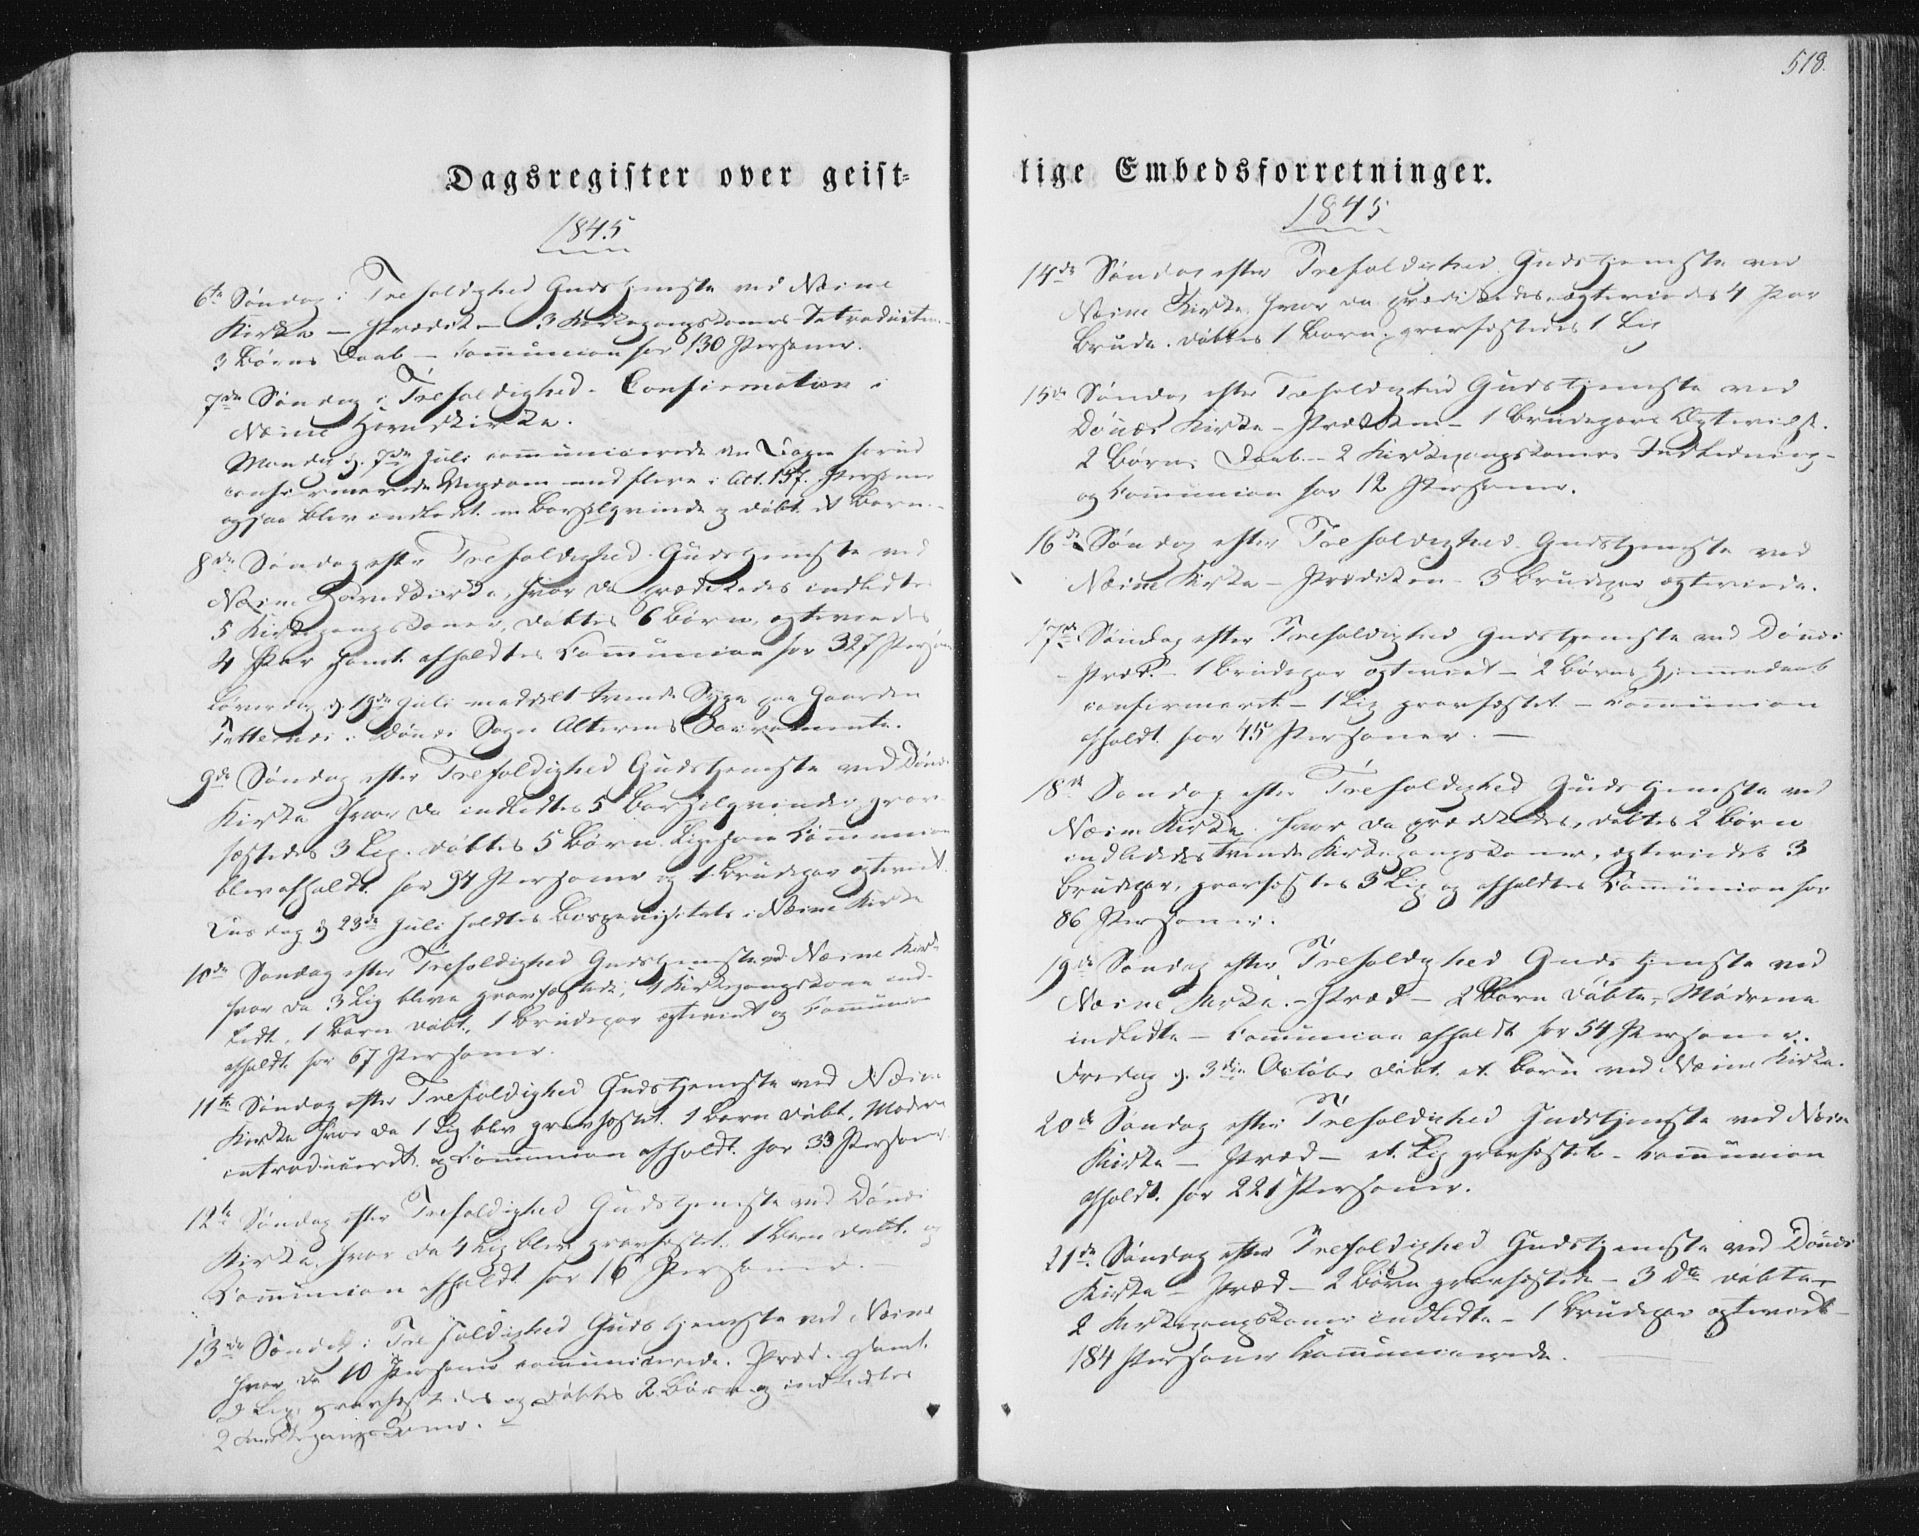 518.
Dagsregister over geist-
lige Embedsforretninger.
1845
6te Søndag i Trefoldighed Gudstjeneste ved Næsne
Kirke – Prædik – 3 Kirkegangskoners Introduction –
3 Børns Daab – Communion for 130 Personer.
7de Søndag i Trefoldighed. Confirmation i
Næsne Hovedkirke.
Mandag d. 7de Juli communicerede den Dagen forud
confirmerede Ungdom med flere i Alt 157 Personer
ogsaa blev indledt en Barselqvinde og døbt et Barn. –
8de Søndag efter Trefoldighed Gudstjeneste ved
Næsne Hovedkirke, hvor da prædikedes indledtes
5 Kirkegangskoner, døbtes 6 Børn, egteviedes
4 Par samt afholdtes Communion for 327 Personer
Løverdag d. 19de Juli meddelt trende Syge paa Gaarden
i Dønnes Sogn Alterens Sacramente.
9de Søndag efter Trefoldighed Gudstjeneste ved Dønnes
Kirke hvor da indledtes 5 Barselqvinder, grav-
fæstedes 3 Lig. døbtes 5 Børn. Ligesom Communion
blev afholdt for 94 Personer og 1 Brudepar egteviet.
Onsdag d 23de Juli holdtes Bispevisitats i Næsne Kirke
10de Søndag efter Trefoldighed Gudstjeneste ved Næsne Kirke
hvor da 3 Lig bleve gravfæstede, 1 Kirkegangskone ind-
ledt, 1 Barn døbt, 1 Brudepar egteviet og Communion
afholdt for 67 Personer.
11te Søndag efter Trefoldighed Gudstjeneste ved Næsne
Kirke hvor da 1 Lig blev gravfæstet. 1 Barn døbt, Moderen
introduceret og Communion afholdt for 33 Personer
12te Søndag efter Trefoldighed Gudstjeneste ved Dønnes
Kirke, hvor da 4 Lig blev gravfæstet. 1 Barn døbt. og
Communion afholdt for 16 Personer. –
13de Søndag i Trefoldighed Gudstjeneste ved Næsne
hvor da 10 Personer communicerede. Præd. samt.
Lig gravfæstedes og døbtes 2 Børn og indledtes
2 Kirkegangskoner. –
1845
14de Søndag efter Trefoldighed Gudstjeneste ved
Næsne Kirke, hvor da prædikedes, egteviedes 4 Par
Brude. døbtes 1 Barn, gravfæstedes 1 Lig
15de Søndag efter Trefoldighed Gudstjeneste ved
Dønnes Kirke – Prædiken – 1 Brudepars Egtevielse.
2 Børns Daab – 2 Kirkegangskoners Indledning –
og Communion for 12 Personer.
16de Søndag efter Trefoldighed Gudstjeneste ved
Næsne Kirke – Prædiken – 3 Brudepar egteviede.
17de Søndag efter Trefoldighed Gudstjeneste ved Dønnes
Præd. – 1 Brudepar egteviet – 2 Børns Hjemmedaab
confirmeret – 1 Lig gravfæstet – Communion
afholdt for 45 Personer. –
18de Søndag efter Trefoldighed Gudstjeneste ved
Næsne Kirke hvor da prædikedes, døbtes 2 Børn
indledtes trende Kirkegangskoner, egteviedes 3
Brudepar, gravfæstes 3 Lig og afholdtes Communion for
86 Personer.
19de Søndag efter Trefoldighed Gudstjeneste ved
Næsne Kirke. – Præd – 2 Børn døbte, Mødrene
indledte – Communion afholdt for 54 Personer.
Fredag d. 3die October døbt et Barn ved Næsne Kirke.
20de Søndag efter Trefoldighed Gudstjeneste ved Næsne
Kirke – Præd – et Lig gravfæstet – Communion
afholdt for 221 Personer.
21de Søndag efter Trefoldighed Gudstjeneste ved Dønnes
Kirke – Præd – 2 Børn gravfæstede – 3 do døbte –
2 Kirkegangskoner indledte – 1 Brudepar egteviede –
184 Personer Communicerede. –